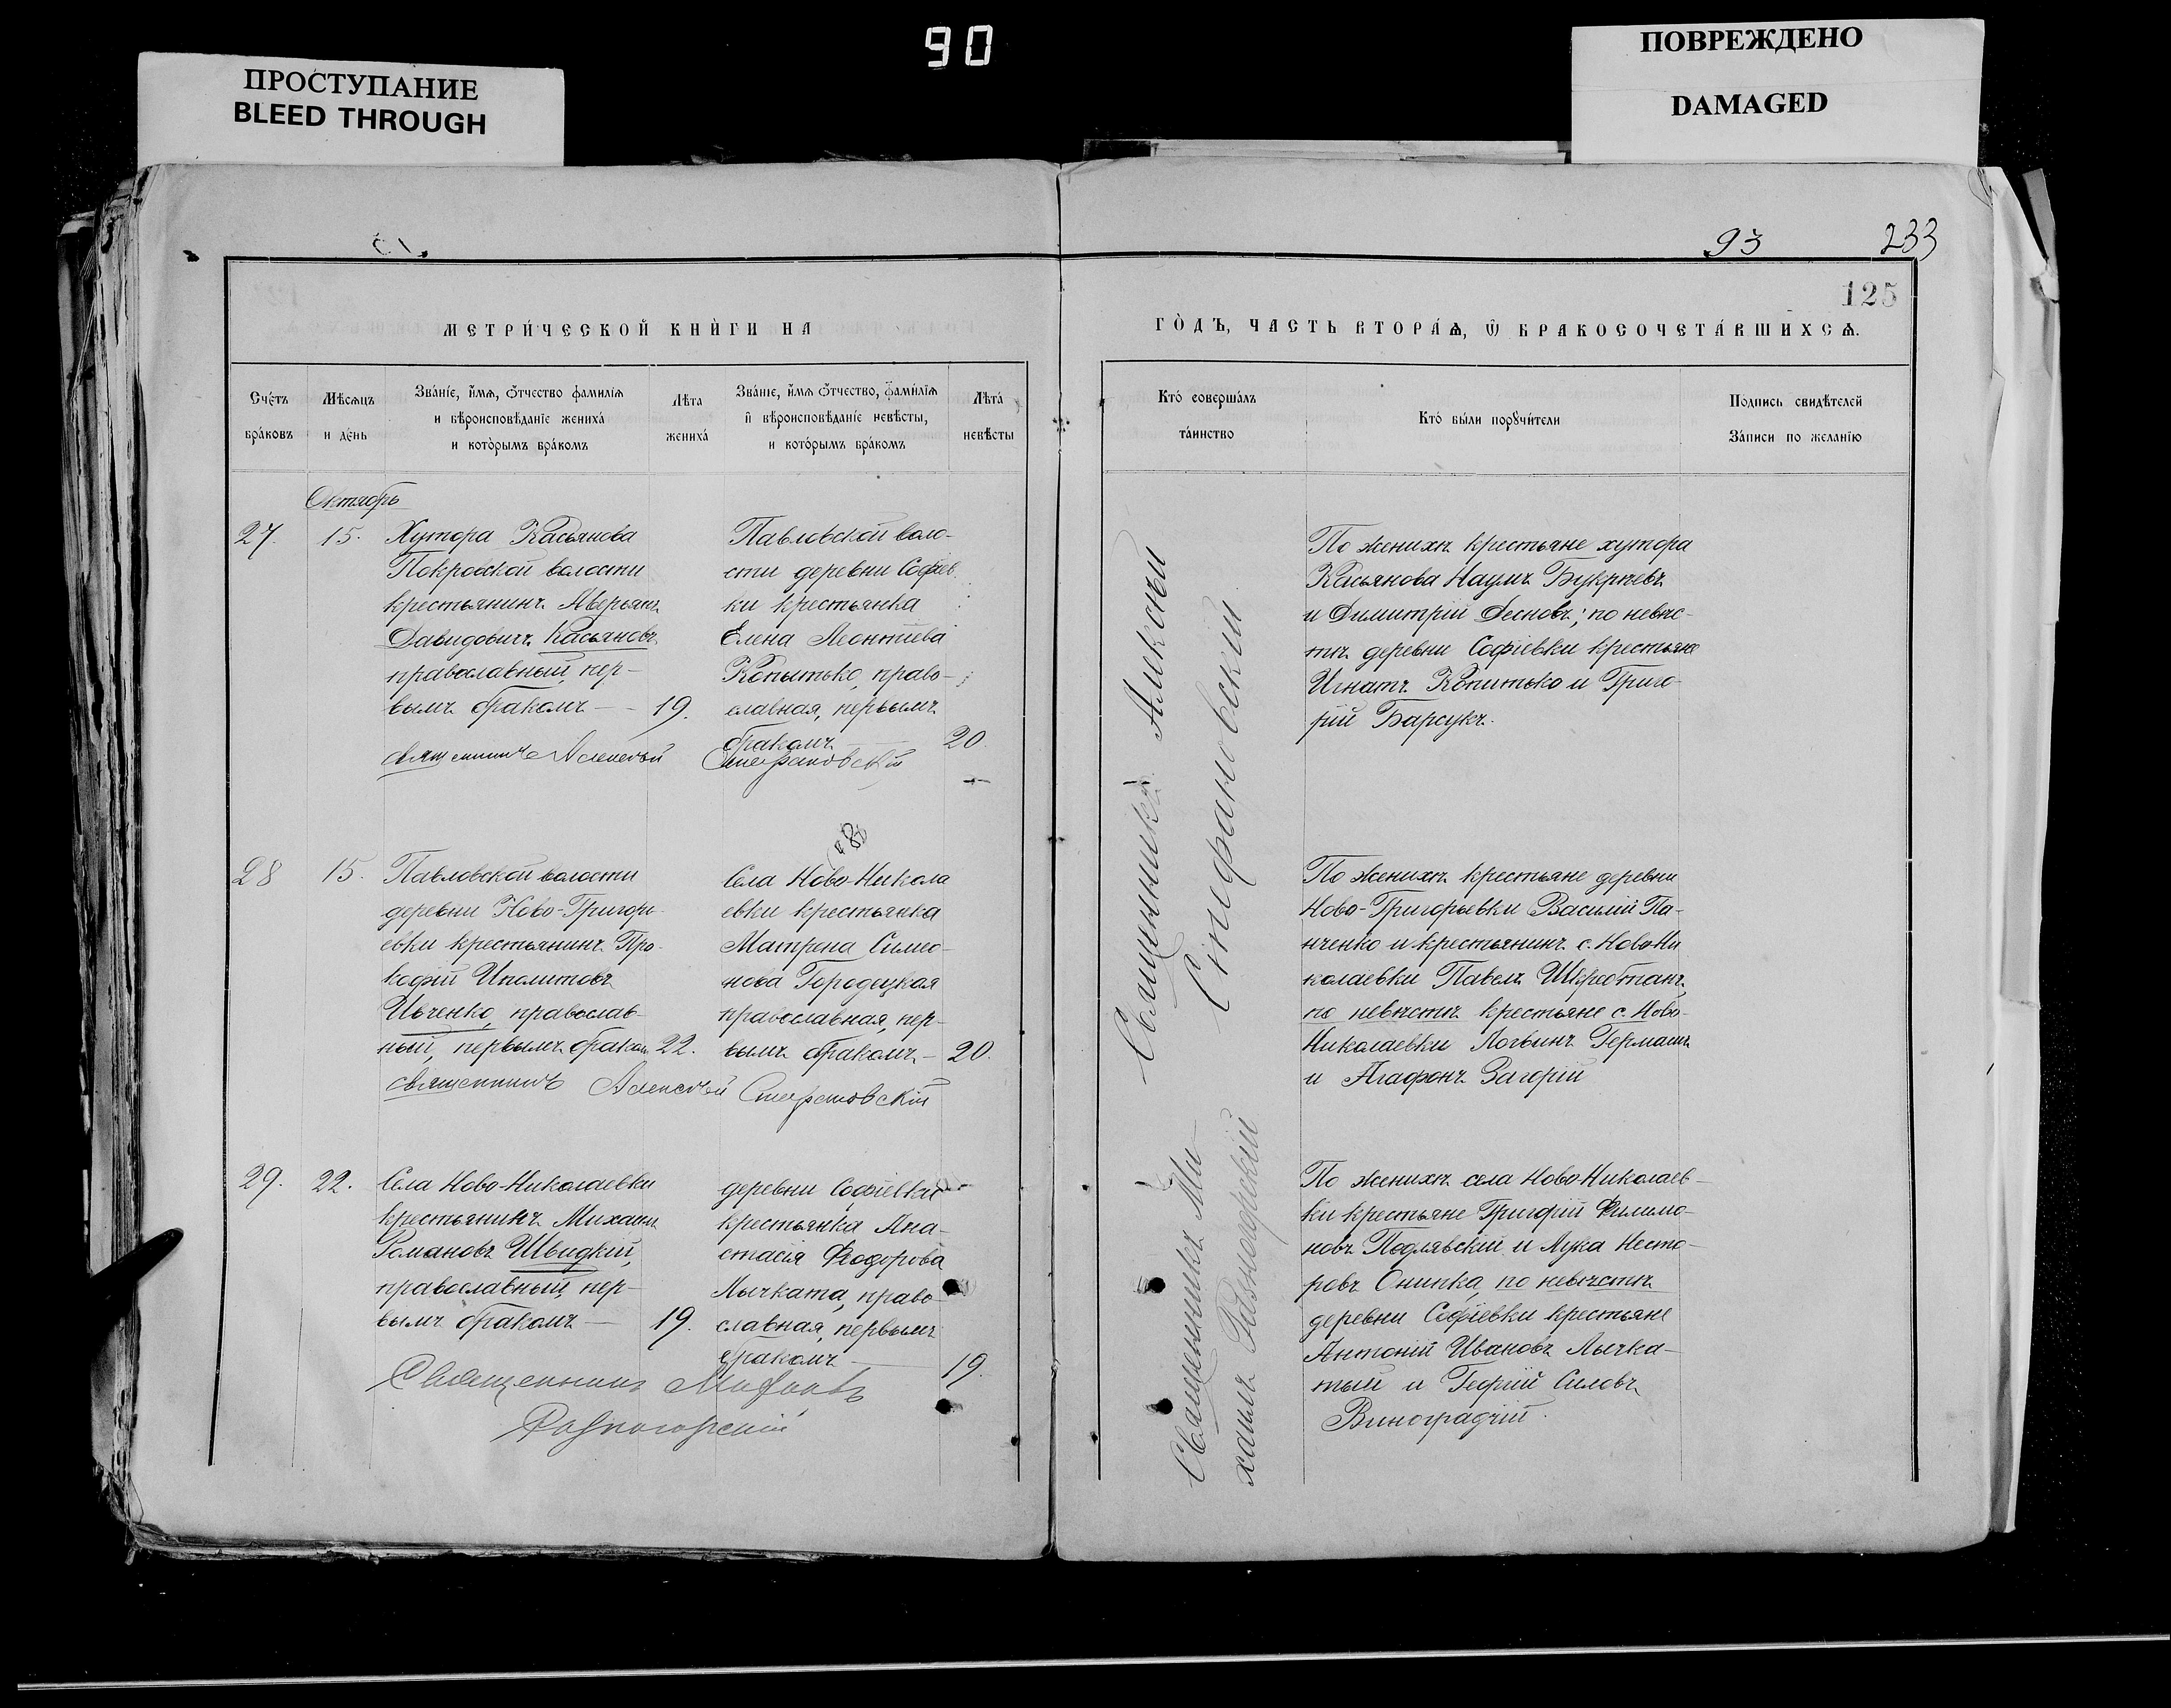 90
ПРОСТУПАНИЕ
BLEED THROUGH
ПОВРЕЖДЕНО
DAMAGED
93
233
125
МЕТРИ́ЧЕСКОЙ КНИ́ГИ НА
Сче́тъ
бра́ковъ
Мѣсѧцъ
и де́нь
Зва́нїе, и҆́мѧ, ѻ҆́тчество фамилїѧ
и вѣроисповѣ́данїе жениха́
и кото́рымъ бра́комъ
Лѣта
жениха́
Зва́нїе, и҆́мѧ ѻ҆́тчество, фами́лїѧ
и҆ вѣроисповѣ́данїе невѣ́сты,
и кото́рымъ бра́комъ
Лѣта́
невѣ́сты
Октябрь
27.
15.
Хутора Касьянова
Покровской волости
крестьянинъ Аверьянъ
Давидовичъ Касьяновъ
православный, пер-
вымъ бракомъ — 19.
Павловской воло-
сти деревни Софіев
ки крестьянка
Елена Леонтіева
Копытько, право-
славная, первымъ
бракомъ — 20.
священникъ Алексѣй Стефановскій
28
15.
Павловской волости
деревни Ново-Григорь-
евки крестьянинъ Про-
кофій Иполитовъ
Ивченко, православ-
ный, первымъ браком 22.
Села Ново-Никола
евки крестьянка
Матрена Симео-
нова Городецкая
православная, пер-
вымъ бракомъ — 20.
священникъ Алексѣй Стефановскій
29.
22.
Села Ново-Николаевки
крестьянинъ Михаилъ
Романовъ Швидкій,
православный, пер-
вымъ бракомъ — 19.
деревни Софіевки
крестьянка Ана-
стасія Ѳеодорова
Лычката, право-
славная, первымъ
бракомъ — 19.
Священникъ Михаилъ
Равногорскій
ГО́ДЪ, ЧАСТЬ ВТОРА́Ѧ, Ѽ БРАКОСОЧЕТА́ВШИХСѦ.
Кто́ соверша́лъ
та́инство
Кто́ бы́ли порꙋчи́тели
По́дпись свидѣ́телей
За́писи по жела́нїю
Священникъ Алексѣй
Стефановскій
По женихѣ крестьяне хутора
Касьянова Наумъ Букрѣевъ
и Димитрій Десновъ; по невѣс-
тѣ деревни Софіевки крестьяне
Игнатъ Копитько и Григо-
рій Барсукъ.
По женихѣ крестьяне деревни
Ново-Григорьевки Василій Па-
нченко и крестьянинъ с. Ново-Ни
колаевки Павелъ Шкребтанъ,
по невѣстѣ крестьяне с. Ново-
Николаевки Логвинъ Германъ
и Агафонъ Загорій
Священникъ Ми-
хаилъ Равногорскій
По женихѣ села Ново-Николаев-
ки крестьяне Григорій Филимо-
новъ Подлявскій и Лука Несто-
ровъ Онипка, по невѣстѣ
деревни Софіевки крестьяне
Антоній Ивановъ Лычка-
тый и Георгій Силовъ
Виноградчій.